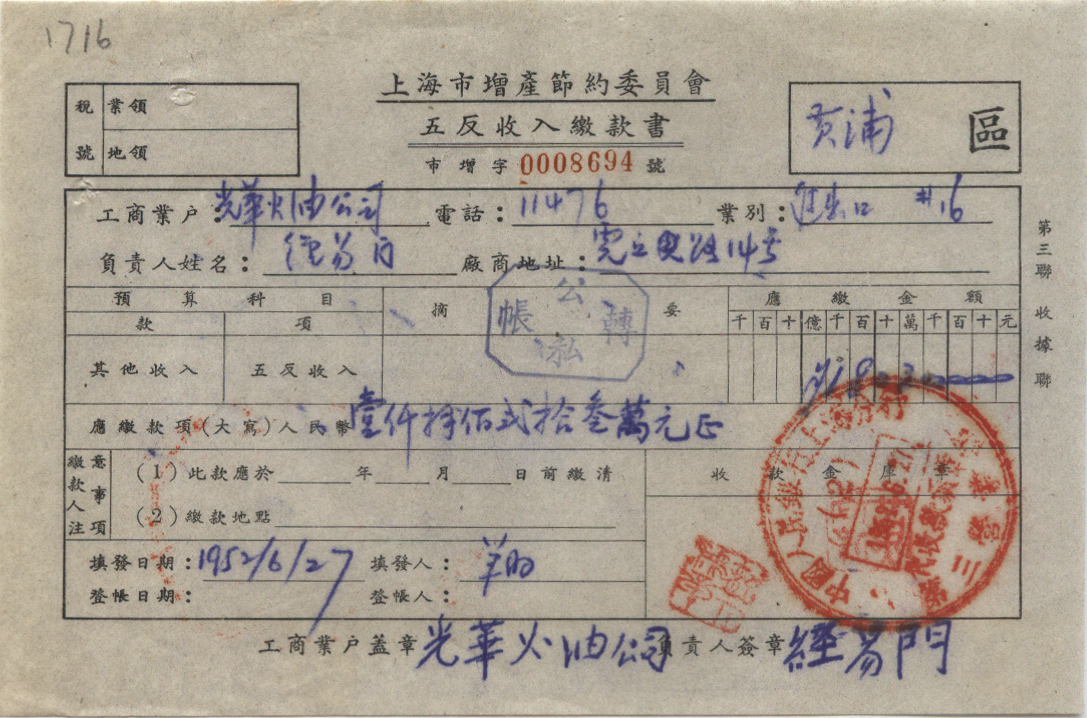 1716
上海市增產節約委員會
五反收入繳款書
市增字 0008694 號
稅號 業領
地領
黃浦 區
工商業户：光華火油公司 電話：11476 業別：進出口 #16
負責人姓名：經易門 廠商地址：14号
第三聯 收據聯
預算科目 摘要 應繳金額
款 項 千百十億千百十萬千百十元
公私轉帳
其他收入 五反收入
應繳款項(大寫)人民幣 壹仟捌佰弍拾叁萬元正
繳款人注意事項
(1)此款應於 年 月 日前繳清
(2)繳款地點
收款金庫章
中國人民銀行上海分行
第三營業
填發日期：1952/6/27 填發人：
登帳日期： 登帳人：
工商業户蓋章 光華火油公司 負責人簽章 經易門